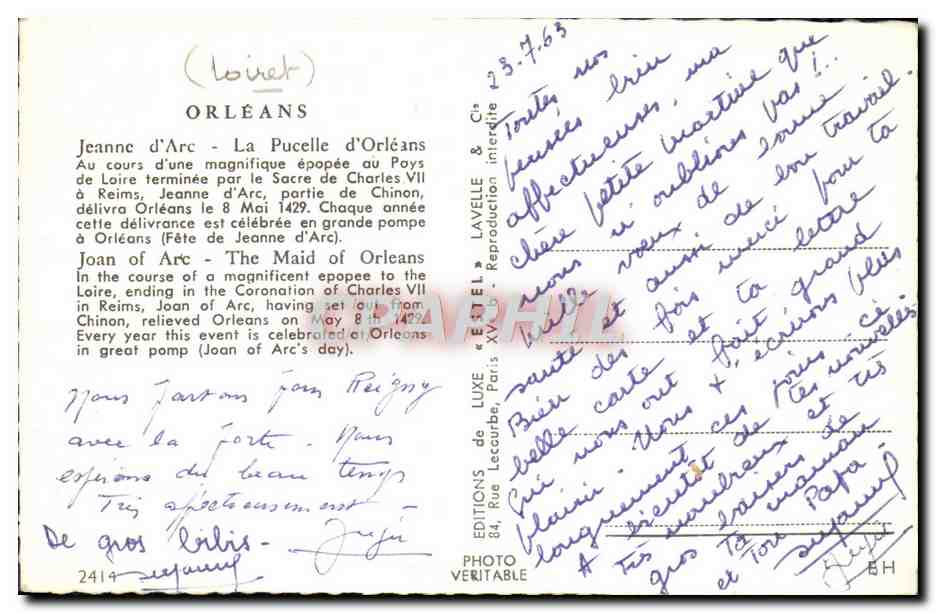 (Loiret)
ORLÉANS
Jeanne d'Arc - La Pucelle d'Orléans
Au cours d'une magnifique épopée au Pays
de Loire terminée par le Sacre de Charles VII
à Reims, Jeanne d'Arc, partie de Chinon,
délivra Orléans le 8 Mai 1429. Chaque année
cette délivrance est célébrée en grande pompe
à Orléans (Fête de Jeanne d'Arc).
Joan of Arc - The Maid of Orleans
In the course of a magnificent epopee to the
Loire, ending in the Coronation of Charles VII
in Reims, Joan of Arc, having set out from
Chinon, relieved Orleans on May 8th 1429.
Every year this event is celebrated at Orleans
in great pomp (Joan of Arc's day).
Nous partons pour Reigny
avec la porte. Nous
espérons du beau temps
Très affectueusement
De gros bibis -
2414
EDITIONS de LUXE « ESTEL » LAVELLE & Cie
84, Rue Lecourbe, Paris XVe - Reproduction interdite
PHOTO
VERITABLE
23.7.63
Toutes nos
pensées bien
affectueuses, ma
chère petite Martine que
nous n'oublions pas !..
Mille voeux de bonne
santé et aussi de bon travail.
Bien des fois merci pour ta
belle carte et ta lettre
qui nous ont fait grand
plaisir. Nous t'écrirons plus
longuement ces jours ci.
A bientôt de tes nouvelles
Très nombreux et très
gros baisers de
Ta maman
et Ton Papa
BH
CPAPHIL